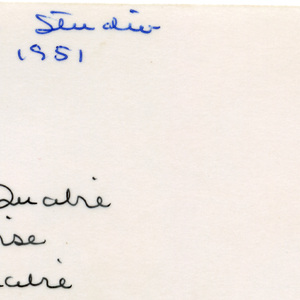 Studio
1951
Quatre
rse
uatre